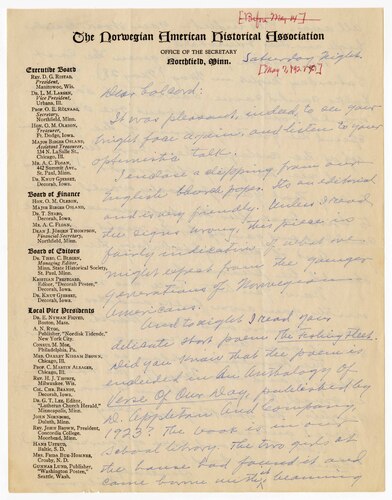 [Before May 14]
The Norwegian American Historical Association
OFFICE OF THE SECRETARY
Northfield, Minn.
Saturday Night.
[May 7, 192
Executive Board
REV. D. G. RISTAD,
President,
Manitowoc, Wis.
DR. L. M. LARSEN,
Vice President,
Urbana, Ill.
PROF. O. E. RÖLVAAG,
Secretary,
Northfield, Minn.
HON. O. M. OLESON,
Treasurer,
Ft. Dodge, Iowa.
MAJOR BIRGER OSLAND,
Assistant Treasurer,
134 N. LaSalle St.,
Chicago, Ill.
MR. A. C. FLOAN,
442 Summit Ave.,
St. Paul, Minn.
DR. KNUT GJERSET,
Decorah, Iowa.
Board of Finance
HON. O. M. OLESON,
MAJOR BIRGER OSLAND,
DR. T. STABO,
Decorah, Iowa.
MR. A. C. FLOAN,
DEAN J. JÖRGEN THOMPSON,
Financial Secretary,
Northfield, Minn.
Board of Editors
DR. THEO. C. BLEGEN,
Managing Editor,
Minn. State Historical Society,
St. Paul, Minn.
KRISTIAN PRESTGARD,
Editor, "Decorah Posten,"
Decorah, Iowa.
DR. KNUT GJERSET,
Decorah, Iowa.
Local Vice Presidents
DR. E. NYMAN FIGVED,
Boston, Mass.
A. N. RYGG,
Publisher, "Nordisk Tidende,"
New York City.
CONSUL M. MOE,
Philadelphia, Pa.
MRS. OAKLEY KISSAM BROWN,
Chicago, Ill.
PROF. C. MARTIN ALSAGER,
Chicago, Ill.
REV. H. J. THORPE,
Milwaukee, Wis.
COL. CHR. BRANDT,
Decorah, Iowa.
DR. G. T. LEE, Editor,
"Lutheran Church Herald,"
Minneapolis, Minn.
JOHN NORNBORG,
Duluth, Minn.
REV. JOHN BROWN, President,
Concordia College.
Moorhead, Minn.
HANS USTRUD,
Baltic, S. D.
MRS. FRIDA BUE-HOMNES,
Crosby, N. D.
GUNNAR LUND, Publisher,
"Washington Posten,"
Seattle, Wash.
Dear Colcord:
It was pleasant, indeed, to see your
bright face again, and listen to your
optimistic talk.
I enclose a clipping from our
English church paper. Its an editorial
and is very friendly. Unless I read
the signs wrong, this piece is
fairly indicative of what we
might expect from the younger
generations of Norwegian
Americans.
And tonight I read your
delicate short poem The Fishing Fleet.
Did you know that the poem is
included in An Anthology of
Verse Of Our Day, published by
D. Appleton And Company,
1923? The book is in our
school library. The two girls at
the house had found it and
came home with it, beaming